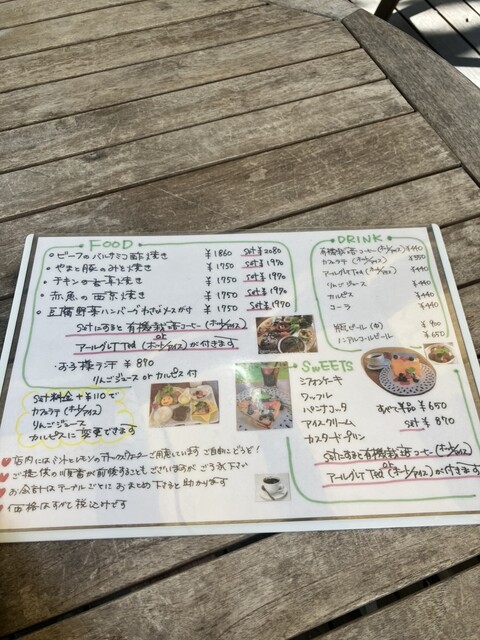 FOOD
・ビーフのバルサミコ酢焼き ¥1860 set ¥2080
・やまと豚のみそ焼き ¥1750 set ¥1970
・チキンの香草焼き ¥1750 set ¥1970
・赤魚の西京焼き ¥1750 set ¥1970
・豆腐野菜ハンバーグ わさびソースがけ ¥1750 set ¥1970
setにすると有機栽培コーヒー(ホット/アイス)
or
アールグレイTea (ホット/アイス)が付きます
・お子様ランチ ¥890
りんごジュース or カルピス付
set料金+¥110で
カフェラテ (ホット/アイス)
りんごジュース
カルピスに変更できます
DRINK
有機栽培コーヒー(ホット/アイス) ¥440
カフェラテ (ホット/アイス) ¥550
アールグレイTea (ホット/アイス) ¥440
りんごジュース ¥440
カルピス ¥440
コーラ ¥440
瓶ビール (中) ¥900
ノンアルコールビール ¥650
SWEETS
シフォンケーキ
ワッフル
パンナコッタ すべて単品 ¥650
アイスクリーム set ¥870
カスタードプリン
setにすると有機栽培コーヒー(ホット/アイス)
or
アールグレイTea (ホット/アイス)が付きます
店内にはミントとレモンのデトックスウォーターご用意しています ご自由にどうぞ!
ご提供の順番が前後することもございますが ご了承下さい
お会計はテーブルごとに おまとめ下さると助かります
価格はすべて税込みです